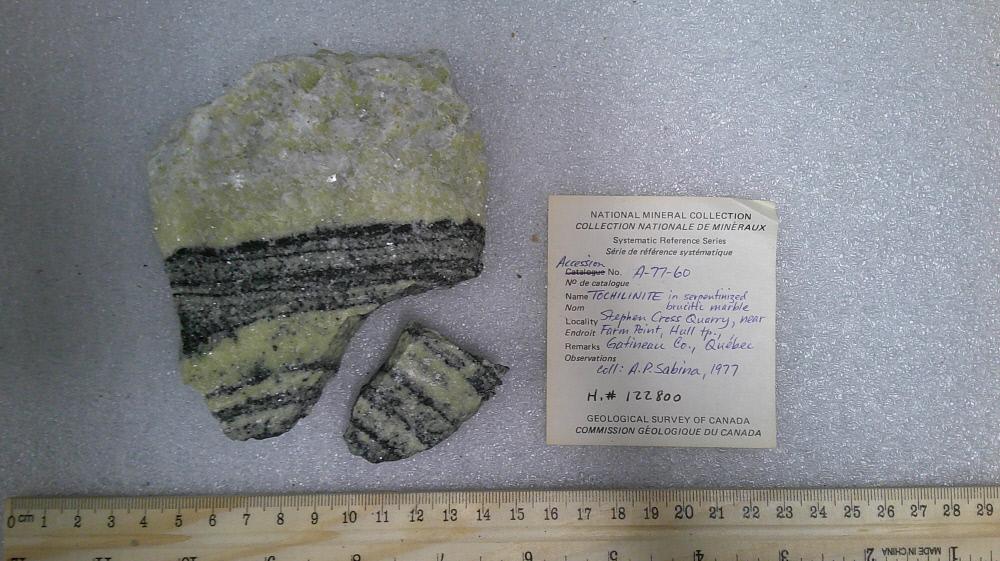 NATIONAL MINERAL COLLECTION
COLLECTION NATIONALE DE MINÉRAUX
Systematic Reference Series
Série de référence systématique
Accession
Catalogue No. A-77-60
Nº de catalogue
Name TOCHILINITE in serpentinized
Nom brucitic marble
Locality Stephen Cross Quarry, near
Endroit Farm Point, Hull tp.,
Remarks Gatineau Co., Québec
Observations
coll: A.P. Sabina, 1977
H.# 122800
GEOLOGICAL SURVEY OF CANADA
COMMISSION GÉOLOGIQUE DU CANADA
0 cm 1 2 3 4 5 6 7 8 9 10 11 12 13 14 15 16 17 18 19 20 21 22 23 24 25 26 27 28 29
12 11 10 9 8 7 6 5 4 3 2 MADE IN CHINA 1